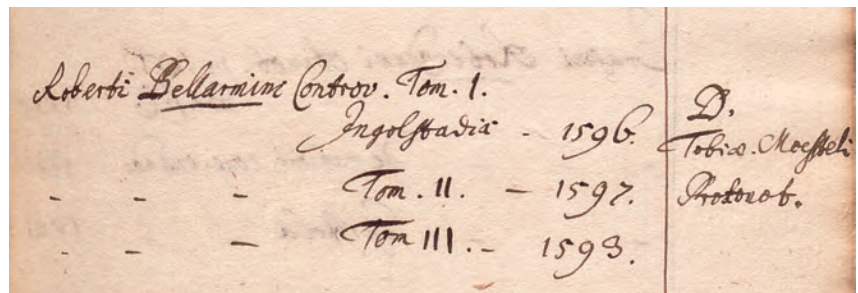 Roberti Bellarmini Controv. Tom. I.
Ingolstadii - 1596.
- - - Tom. II. - 1597.
- - - Tom III. - 1593.
D.
Tobiæ. Moesteli
Protonot.